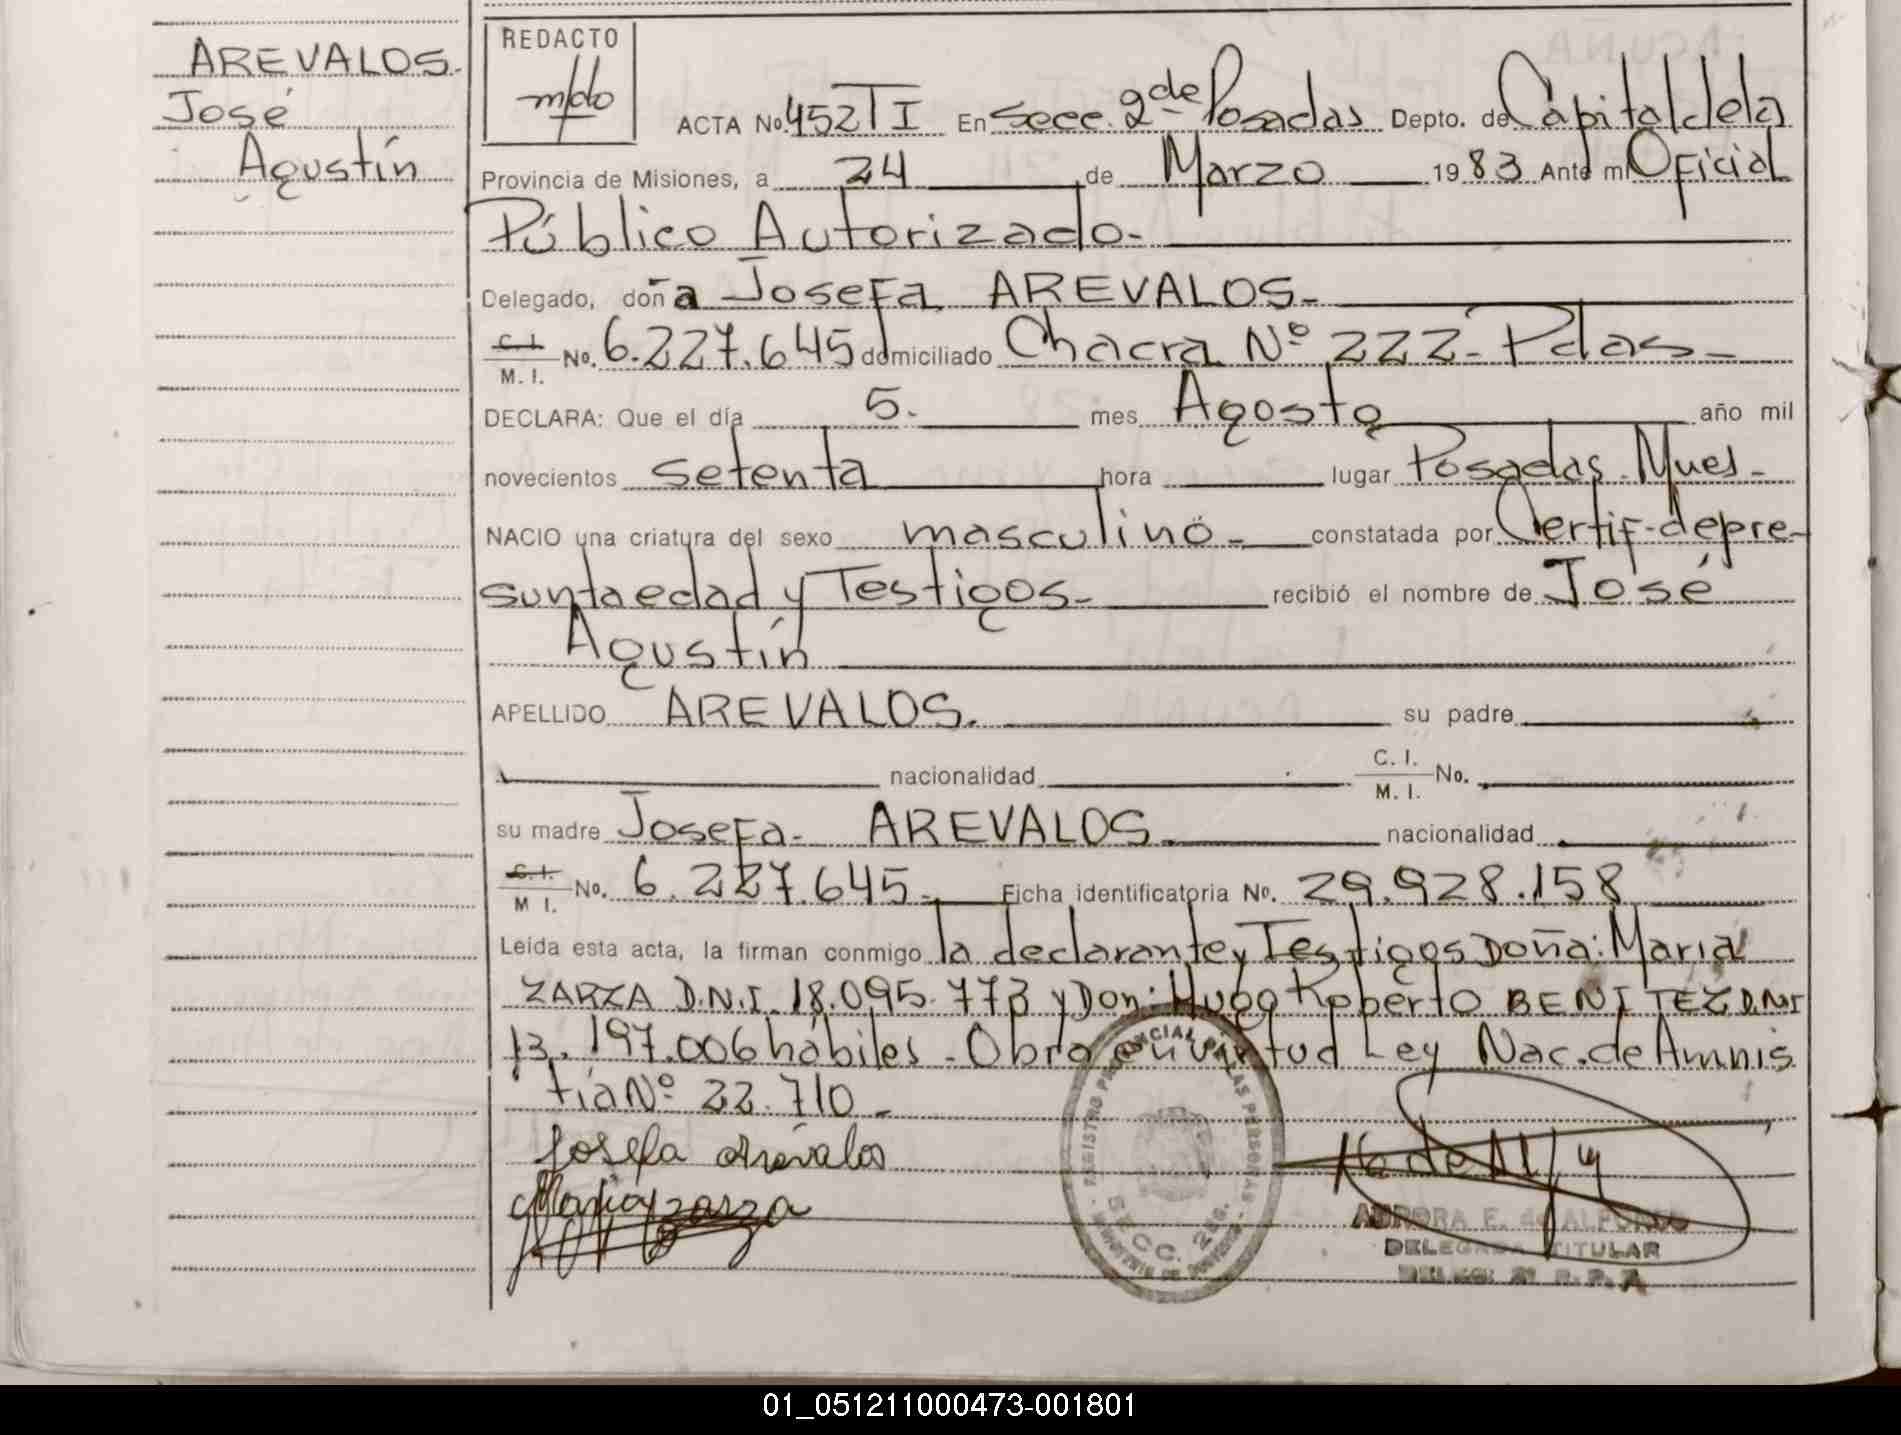 AREVALOS.
José
Agustín
REDACTO
ACTA No. 452 T I En Secc. 2da Posadas Depto. de Capital dela
Provincia de Misiones, a 24 de Marzo 1983 Ante mi Oficial
Público Autorizado-
Delegado, doña Josefa AREVALOS-
C. I. / M. I. No. 6.227.645 domiciliado Chacra Nº 222- Pdas-
DECLARA: Que el día 5. mes Agosto año mil
novecientos setenta hora lugar Posadas-Mnes-
NACIO una criatura del sexo masculino- constatada por Certif-depre-
sunta edad y Testigos- recibió el nombre de José
Agustín
APELLIDO AREVALOS. su padre
nacionalidad C. I. / M. I. No.
su madre Josefa- AREVALOS nacionalidad
C. I. / M I. No. 6.227.645- Ficha identificatoria No. 29.928.158
Leída esta acta, la firman conmigo la declarante y Testigos Doña: Maria
ZARZA D.N.I. 18.095.773 y Don: Hugo Roberto BENITEZ D.N.I
13.197.006 hábiles-Obra en virtud Ley Nac. de Amnis
tía Nº 22.710-
Josefa Arévalos
Maria zarza
REGISTRO PROVINCIAL DE LAS PERSONAS
SECC. 2da.
AURORA E. de ALFONSO
DELEGADA TITULAR
01_051211000473-001801